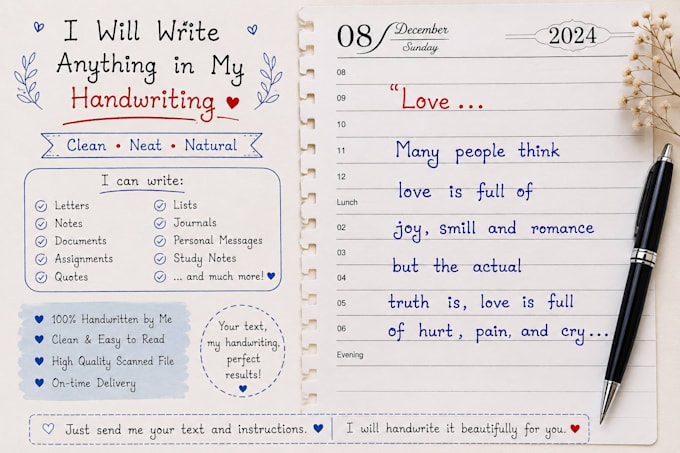 I Will Write
Anything in My
Handwriting
Clean • Neat • Natural
I can write:
Letters
Notes
Documents
Assignments
Quotes
Lists
Journals
Personal Messages
Study Notes
... and much more!
100% Handwritten by Me
Clean & Easy to Read
High Quality Scanned File
On-time Delivery
Your text,
my handwriting,
perfect
results!
08 December
Sunday
2024
08
09
“Love ...
10
11
Many people think
12
love is full of
Lunch
02
joy, smill and romance
03
but the actual
04
05
truth is, love is full
06
of hurt, pain, and cry...
Evening
Just send me your text and instructions.
I will handwrite it beautifully for you.